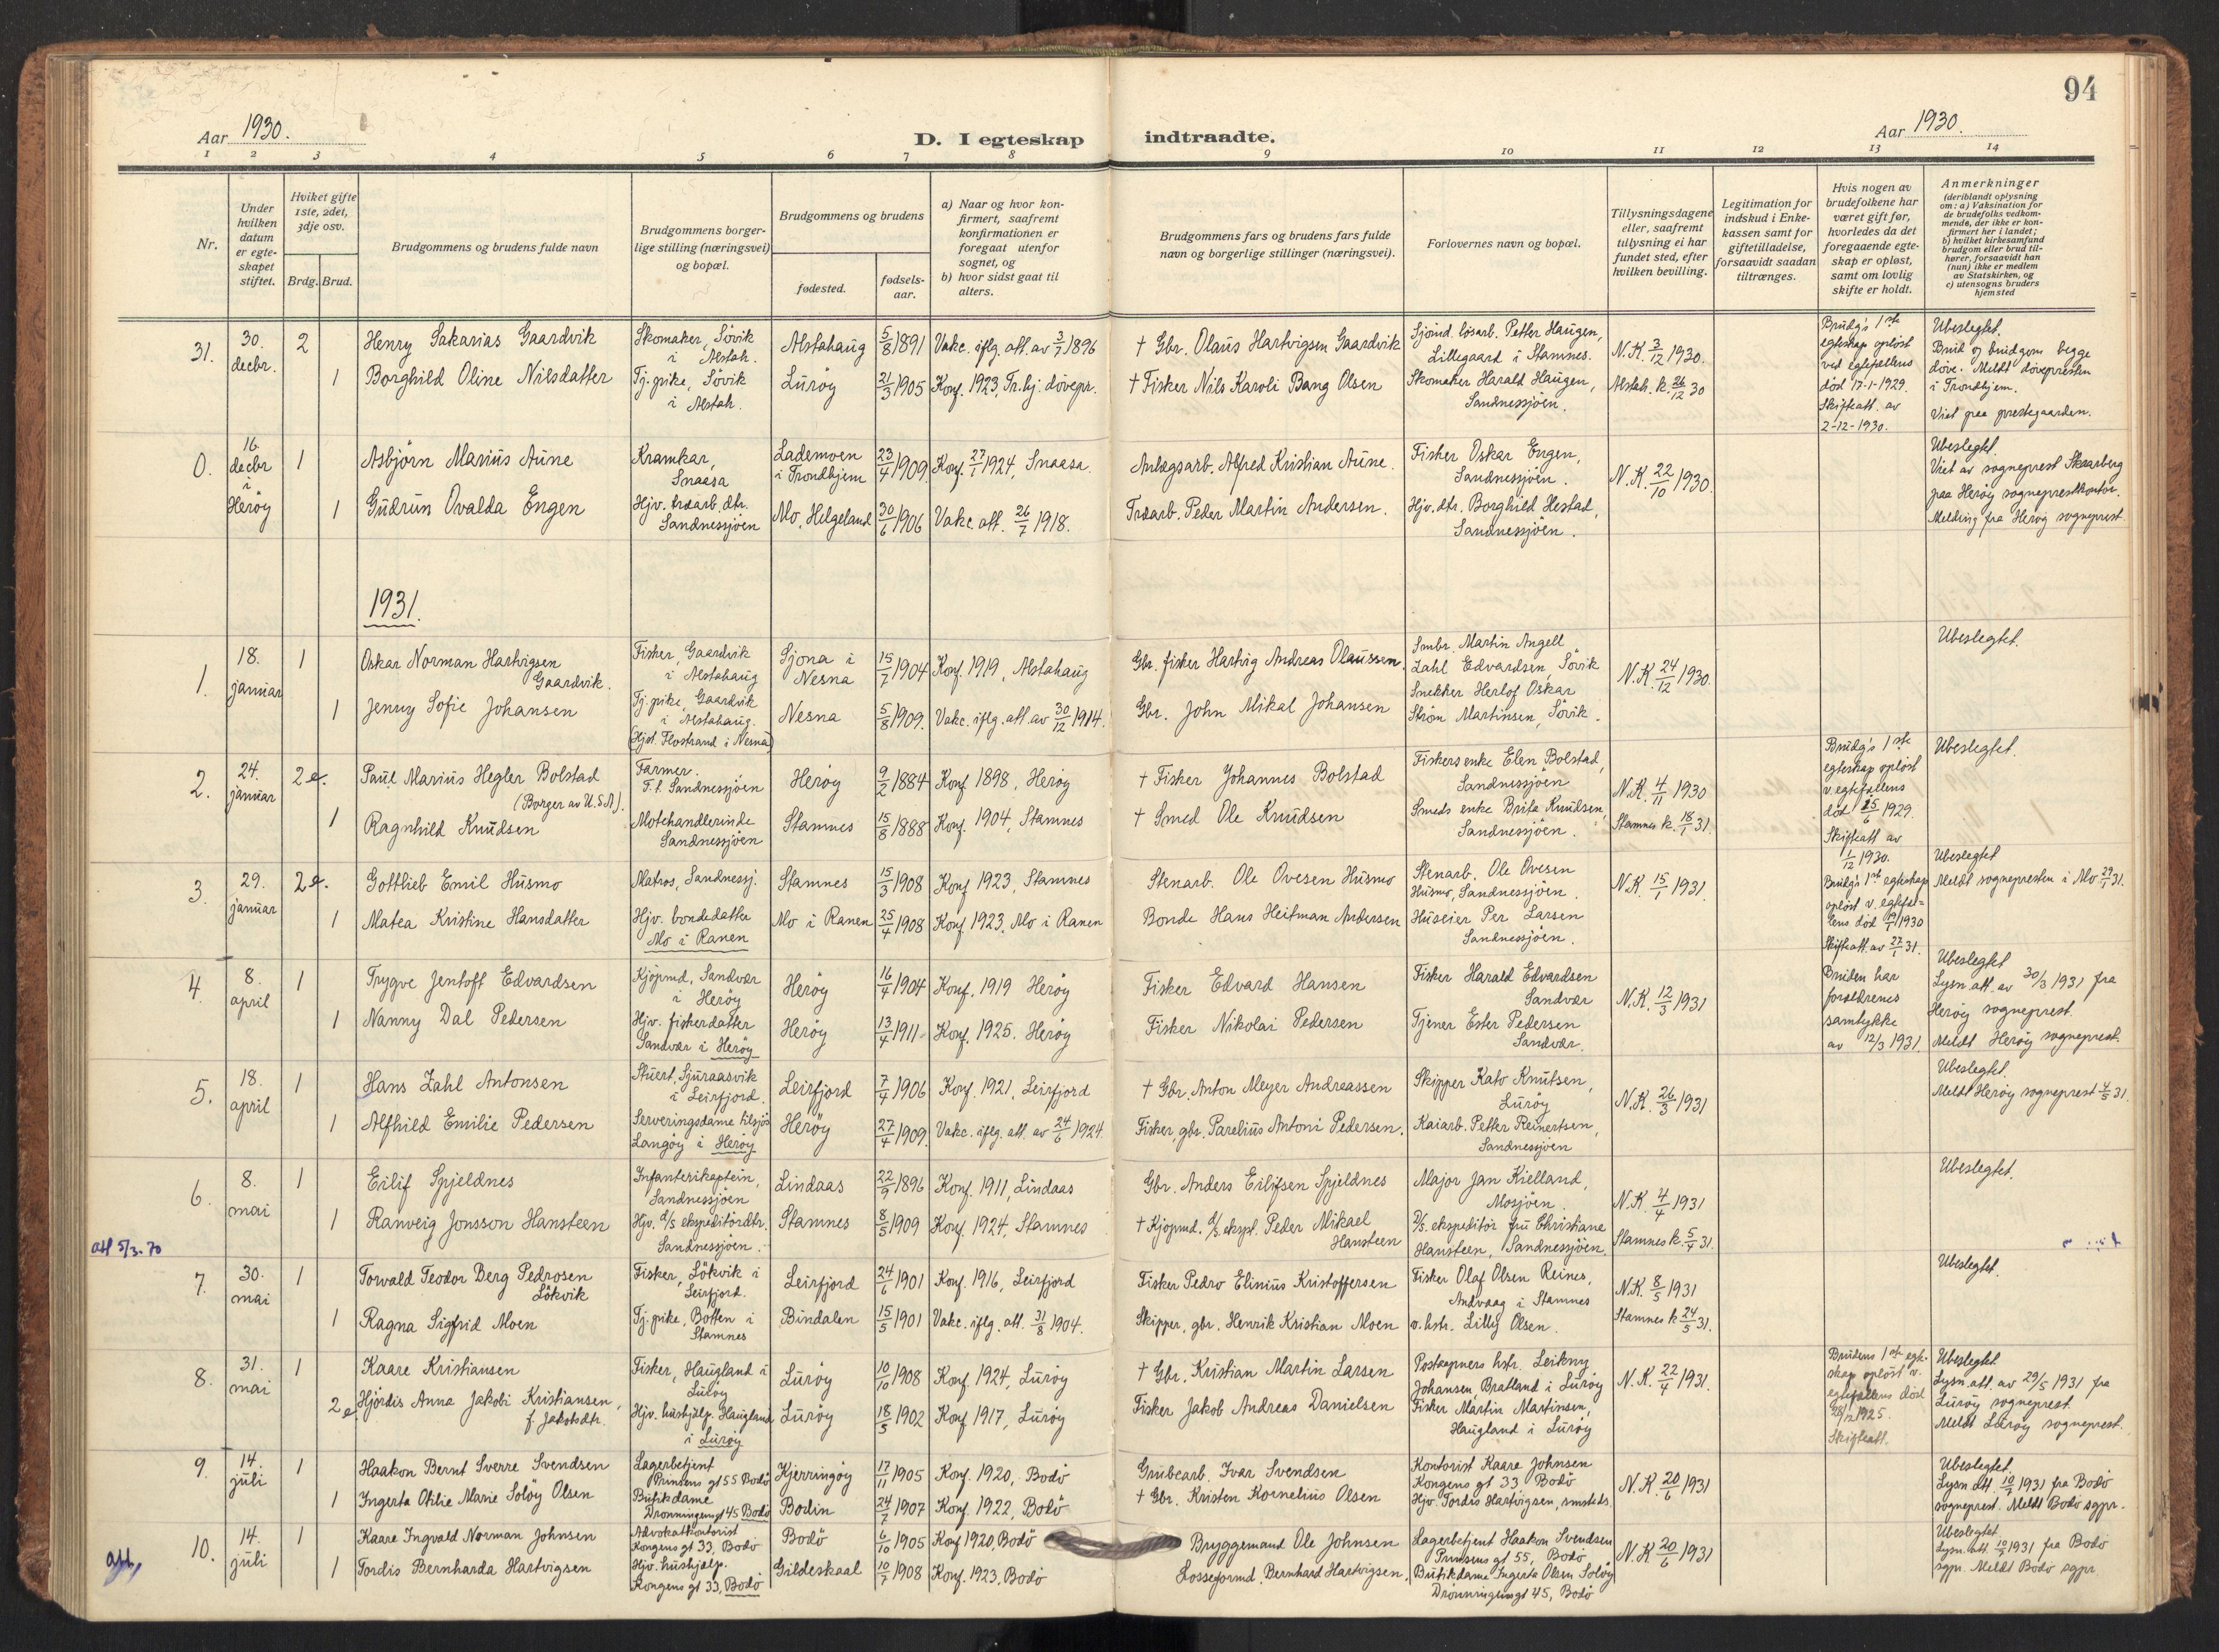 94
Aar 1930.
D. I egteskap indtraadte.
Aar 1930.
1 2 3 4 5 6 7 8 9 10 11 12 13 14
Nr.
Under hvilken datum er egte-skapet stiftet.
Hviket gifte 1ste, 2det, 3dje osv.
Brdg. Brud.
Brudgommens og brudens fulde navn
Brudgommens borger-lige stilling (næringsvei) og bopæl.
Brudgommens og brudens
fødested.
fødsels-aar.
a) Naar og hvor kon-firmert, saafremt konfirmationen er foregaat utenfor sognet, og
b) hvor sidst gaat til alters.
Brudgommens fars og brudens fars fulde navn og borgerlige stillinger (næringsvei).
Forlovernes navn og bopæl.
Tillysningsdagene eller, saafremt tillysning ei har fundet sted, efter hvilken bevilling.
Legitimation for indskud i Enke-kassen samt for giftetilladelse, forsaavidt saadan tiltrænges.
Hvis nogen av brudefolkene har været gift før, hvorledes da det foregaaende egte-skap er opløst, samt om lovlig skifte er holdt.
Anmerkninger (deriblandt oplysning om: a) Vaksination for de brudefolks vedkom-mende, der ikke er kon-firmert her i landet; b) hvilket kirkesamfund brudgom eller brud til-hører, forsaavidt han (hun) ikke er medlem av Statskirken, og c) utensogns bruders hjemsted
31. 30. decbr. 2 Henry Sakarias Gaardvik Skomaker, Sövik i Alstah. Alstahaug 5/8 1891 Vakc. iflg. att. av 3/7 1896 † Gbr. Olaus Hartvigsen Gaardvik Sjömd. lösarb. Petter Haugen, Lillegaard i Stamnes. N.K. 3/12 1930.
1 Borghild Oline Nilsdatter Tj. pike, Sövik i Alstah. Luröy 21/3 1905 Konf. 1923, Tr.hj. dövepr. † Fisker Nils Karoli Bang Olsen Skomaker Harald Haugen, Sandnessjöen. Alstah. k. 26/12 30
Brudg's 1ste egteskap oplöst ved egtefællens död 17-1-1929. Skifteatt. av 2-12-1930.
Ubeslegtet. Brud og brudgom begge döve. Meldt dövepresten i Trondhjem. Viet paa prestegaarden.
0. 16. decbr i Heröy 1 Asbjörn Marius Aune Kramkar, Snaasa Lademoen i Trondhjem 23/4 1909 Konf. 27/1 1924, Snaasa. Anlægsarb. Alfred Kristian Aune. Fisker Oskar Engen, Sandnessjöen. N.K. 22/10 1930.
1 Gudrun Ovalda Engen Hjv. træarb. dtr. Sandnessjöen Mo, Helgeland 30/6 1906 Vakc. att. 26/7 1918. Træarb. Peder Martin Andersen. Hjv. dtr. Borghild Hestad, Sandnessjöen.
Ubeslegtet. Viet av sogneprest Skaarberg paa Heröy sogneprestkontor. Melding fra Heröy sogneprest.
1931.
1. 18. januar 1 Oskar Norman Hartvigsen Gaardvik. Fisker, Gaardvik i Alstahaug Sjona i Nesna 15/7 1904 Konf. 1919, Alstahaug Gbr. fisker Hartvig Andreas Olaussen. Smbr. Martin Angell Zahl Edvardsen, Sövik N.K. 24/12 1930. Ubeslegtet.
1 Jenny Sofie Johansen Tj. pike, Gaardvik i Alstahaug. (Hjst. Flostrand i Nesna) Nesna 5/8 1909. Vakc. iflg. att. av 30/12 1914. Gbr. John Mikal Johansen Snekker Herlof Oskar Ström Martinsen, Sövik.
2. 24. januar 2 e. Paul Marius Hegler Bolstad (Borger av U.S.A). Farmer. F.t. Sandnessjöen Heröy 9/2 1884 Konf 1898, Heröy † Fisker Johannes Bolstad Fiskersenke Elen Bolstad, Sandnessjöen N.K. 4/11 1930
1 Ragnhild Knudsen Motehandlerinde Sandnessjöen Stamnes 15/8 1888 Konf. 1904, Stamnes † Smed Ole Knudsen Smeds enke Brita Knudsen, Sandnessjöen. Stamnes k. 18/1 31.
Brudg's 1ste egteskap oplöst v. egtefællens död 25/6 1929. Skifteatt av 1/12 1930.
Ubeslegtet.
3. 29. januar 2 e. Gottlieb Emil Husmo Matros, Sandnessj. Stamnes 15/3 1908 Konf 1923, Stamnes Stenarb. Ole Ovesen Husmo Stenarb. Ole Ovesen Husmo, Sandnessjöen. N.K. 15/1 1931.
1 Matea Kristine Hansdatter Hjv. bondedatter Mo i Ranen Mo i Ranen 25/4 1908 Konf. 1923. Mo i Ranen Bonde Hans Heitman Andersen Huseier Per Larsen Sandnessjöen.
Brudg's 1ste egteskap oplöst v. egtefæl=lens död 1930 Skifteatt. av 27/1 31.
Ubeslegtet Meldt sognepresten i Mo 29/1 31.
4. 8. april 1 Trygve Jentoft Edvardsen Kjöpmd, Sandvær i Heröy Heröy 16/4 1904 Konf. 1919 Heröy Fisker Edvard Hansen Fisker Harald Edvardsen Sandvær N.K. 12/3 1931
1 Nanny Dal Pedersen Hjv. fiskerdatter Sandvær i Heröy Heröy 13/4 1911 Konf. 1925. Heröy Fisker Nikolai Pedersen Tjener Ester Pedersen Sandvær.
Bruden har forældrenes samtykke av 12/3 1931.
Ubeslegtet Lysn. att. av 30/3 1931 fra Heröy sogneprest. Meldt Heröy sogneprest.
5. 18. april 1 Hans Zahl Antonsen Stuert, Sjuraasvik i Leirfjord. Leirfjord 7/4 1906 Konf. 1921, Leirfjord † Gbr. Anton Meyer Andreassen Skipper Kato Knutsen, Luröy N.K. 26/3 1931
1 Alfhild Emilie Pedersen Serveringsdame tilsjös Langöy i Heröy Heröy 27/4 1909. Vakc. iflg. att. av 24/6 1924. Fisker, gbr. Parelius Antoni Pedersen. Kaiarb. Petter Reinertsen, Sandnessjöen
Ubeslegtet. Meldt Heröy sogneprest 4/5 31.
6. 8. mai 1 Eilif Spjeldnes Infanterikaptein, Sandnessjöen Lindaas 22/9 1896 Konf. 1911, Lindaas Gbr. Anders Eilifsen Spjeldnes Major Jan Kielland, Mosjöen. N.K. 4/4 1931 Ubeslegtet.
1 Ranveig Jonsson Hansteen Hjv. d/s ekspeditördtr. Sandnessjöen. Stamnes 8/5 1909 Konf. 1924, Stamnes † Kjöpmd. d/s. ekspd. Peder Mikael Hansteen D/s. ekspeditör fru Christiane Hansteen, Sandnessjöen. Stamnes k. 5/4 31.
att 5/3.70
7. 30. mai 1 Torvald Teodor Berg Pedrosen Lökvik Fisker, Lökvik i Leirfjord. Leirfjord 24/6 1901 Konf. 1916, Leirfjord Fisker Pedro Elinius Kristoffersen Fisker Olaf Olsen Reines, Andvaag i Stamnes N.K. 8/5 1931 Ubeslegtet.
1 Ragna Sigfrid Moen Tj. pike, Botten i Stamnes Bindalen 15/5 1901 Vakc. iflg. att. 31/8 1904. Skipper, gbr. Henrik Kristian Moen o. hstr. Lilly Olsen. Stamnes k 24/5 31.
8. 31. mai 1 Kaare Kristiansen Fisker, Haugland i Luröy Luröy 10/10 1908 Konf. 1924, Luröy † Gbr. Kristian Martin Larsen Postaapners hstr. Leikny Johansen, Bratland i Luröy N.K. 22/4 1931.
2 e. Hjördis Anna Jakobi Kristiansen, f. Jakobsdtr. Hjv. hushjælp. Haugland i Luröy Luröy 18/5 1902 Konf 1917, Luröy Fisker Jakob Andreas Danielsen Fisker Martin Martinsen, Haugland i Luröy
Brudens 1ste egte-skap oplöst v. egtefællens död 28/2 1925. Skifteatt.
Ubeslegtet Lysn. att. av 29/5 1931 fra Luröy sogneprest Meldt Luröy sogneprest.
9. 14. juli 1 Haakon Bernt Sverre Svendsen Lagerbetjent Prinsens gt 55 Bodö Kjerringöy 17/11 1905 Konf. 1920, Bodö Grubearb. Ivar Svendsen Kontorist Kaare Johnsen Kongens gt 33 Bodö N.K. 20/6 1931
1 Ingerta Otilie Marie Solöy Olsen Butikdame Dronningensgt 45 Bodö Bodin 24/7 1907 Konf. 1922, Bodö † Gbr. Kristen Kornelius Olsen Hjv. Tordis Hartvigsen, smsteds.
Ubeslegtet. Lysn. att. 10/7 1931 fra Bodö sogneprest. Meldt Bodö sgpr.
10. 14. juli 1 Kaare Ingvald Norman Johnsen Advokatkontorist Kongens gt 33, Bodö Bodö 6/10 1905 Konf 1920, Bodö Bryggemand Ole Johnsen Lagerbetjent Haakon Svendsen Prinsens gt 55, Bodö N.K. 20/6 1931
att, 1 Tordis Bernharda Hartvigsen Hjv. hushjælp. Kongens gt 33, Bodö Gildeskaal 10/7 1908 Konf. 1923, Bodö Losseformd. Bernhard Hartvigsen. Butikdame Ingerta Olsen Solöy Dronningensgt 45, Bodö
Ubeslegtet Lysn. att. 10/7 1931 fra Bodö sgpr. Meldt Bodö sgpr.